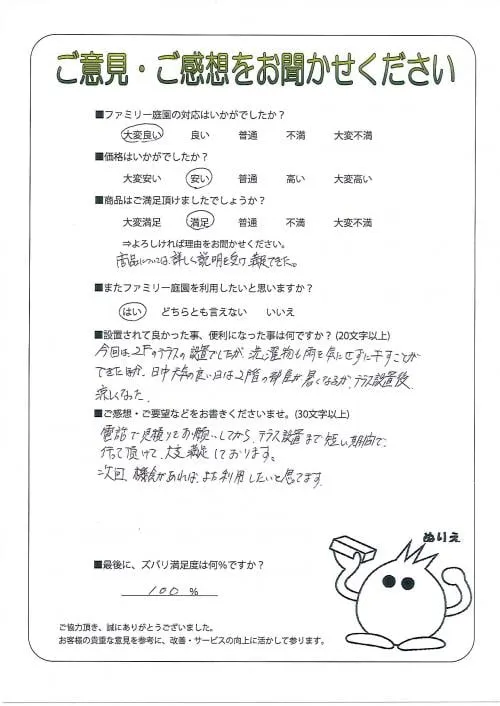 ご意見・ご感想をお聞かせください
■ファミリー庭園の対応はいかがでしたか？
大変良い 良い 普通 不満 大変不満
■価格はいかがでしたか？
大変安い 安い 普通 高い 大変高い
■商品はご満足頂けましたでしょうか？
大変満足 満足 普通 不満 大変不満
⇒よろしければ理由をお聞かせください。
商品については、詳しく説明を受け、満足できた。
■またファミリー庭園を利用したいと思いますか？
はい どちらとも言えない いいえ
■設置されて良かった事、便利になった事は何ですか？(20文字以上)
今回は、2Fのテラスの設置でしたが、洗濯物も雨を気にせずに干すことが
できたほか、日中天気の良い日は2階の部屋が暑くなるが、テラス設置後、
涼しくなった。
■ご感想・ご要望などをお書きくださいませ。(30文字以上)
電話で見積りをお願いしてから、テラス設置まで短い期間で、
行って頂けて、大変満足しております。
次回、機会があれば、また利用したいと思てます。
ぬりえ
■最後に、ズバリ満足度は何％ですか？
100 ％
ご協力頂き、誠にありがとうございました。
お客様の貴重な意見を参考に、改善・サービスの向上に活かして参ります。